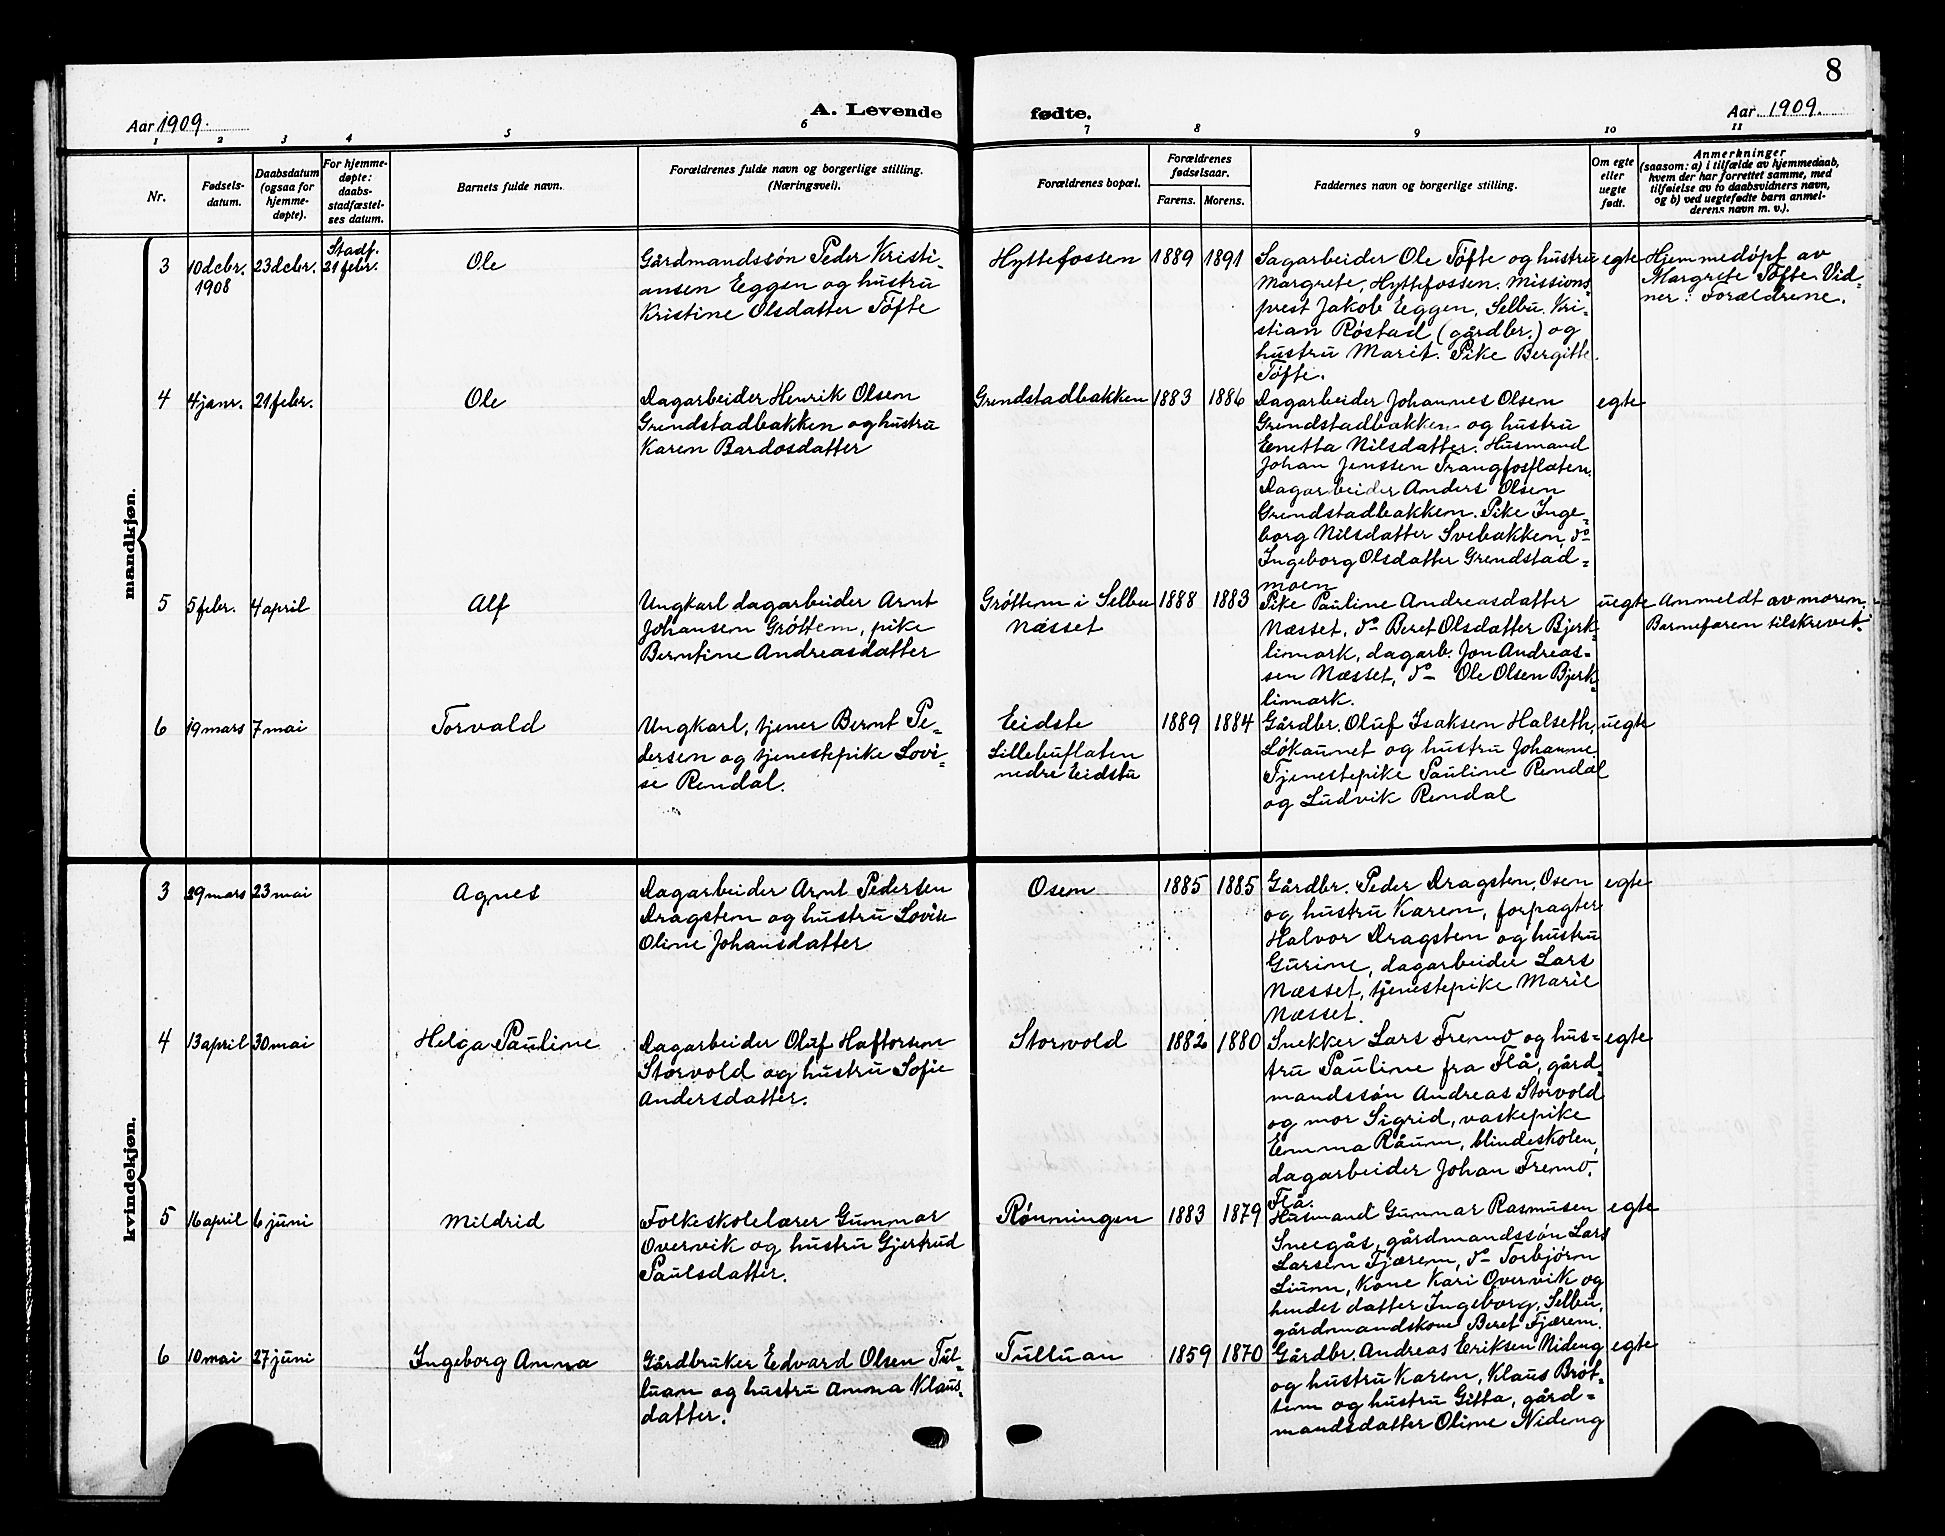 8
Aar 1909.
A. Levende
fødte.
Aar 1909.
1 2 3 4 5 6 7 8 9 10 11
Nr.
Fødsels-
datum.
Daabsdatum
(ogsaa for
hjemme-
døpte).
For hjemme-
døpte:
daabs-
stadfæstel-
ses datum.
Barnets fulde navn.
Forældrenes fulde navn og borgerlige stilling.
(Næringsvei).
Forældrenes bopæl.
Forældrenes
fødselsaar.
Farens. Morens.
Faddernes navn og borgerlige stilling.
Om egte
eller
uegte
født.
Anmerkninger
(saasom: a) i tilfælde av hjemmedaab,
hvem der har forrettet samme, med
tilføielse av to daabsvidners navn,
og b) ved uegtefødte barn anmel-
derens navn m. v.).
mandkjøn.
3
10 dcbr.
1908
23 dcbr.
Stadf.
21 febr.
Ole
Gårdmandssøn Peder Kristi-
ansen Eggen og hustru
Kristine Olsdatter Tøfte
Hyttefossen
1889
1891
Sagarbeider Ole Tøfte og hustru
Margrete, Hyttefossen. Missions-
prest Jakob Eggen, Selbu. Kri-
stian Røstad (gårdbr.) og
hustru Marit. Pike Bergitte
Tøfte.
egte
Hjemmedøpt av
Margrete Tøfte. Vid-
ner: Forældrene.
4
4 janr.
21 febr.
Ole
Dagarbeider Henrik Olsen
Grendstadbakken og hustru
Karen Bardosdatter
Grendstadbakken
1883
1886
Dagarbeider Johannes Olsen
Grendstadbakken og hustru
Enetta Nilsdatter. Husmand
Johan Jenssen Trangfosflaten.
Dagarbeider Anders Olsen
Grendstadbakken. Pike Inge-
borg Nilsdatter Svebakken, do
Ingeborg Olsdatter Grendstad-
moen
egte
5
5 febr.
4 april
Alf
Ungkarl dagarbeider Arnt
Johansen Grøttem, pike
Berntine Andreasdatter
Grøttem i Selbu
Næsset
1888
1883
Pike Pauline Andreasdatter
Næsset, do Beret Olsdatter Bjerk-
limark, dagarb. Jon Andreas-
sen Næsset, do Ole Olsen Bjerk-
limark.
uegte
Anmeldt av moren.
Barnefaren tilskrevet.
6
19 mars
7 mai
Torvald
Ungkarl, tjener Bernt Pe-
dersen og tjenestepike Lovi-
se Rendal.
Eidste
Lillebuflaten
nedre Eidstu
1889
1884
Gårdbr. Oluf Isaksen Halseth,
Løkaunet og hustru Johanne
Tjenestepike Pauline Rendal
og Ludvik Rendal
uegte
kvindekjøn.
3
29 mars
23 mai
Agnes
Dagarbeider Arnt Pedersen
Dragsten og hustru Lovise
Oline Johansdatter
Osen
1885
1885
Gårdbr. Peder Dragsten, Osen
og hustru Karen, forpagter
Halvor Dragsten og hustru
Gurine, dagarbeider Lars
Næsset, tjenestepike Marie
Næsset.
egte
4
13 april
30 mai
Helga Pauline
Dagarbeider Oluf Haftorsen
Storvold og hustru Sofie
Andersdatter.
Storvold
1882
1880
Snekker Lars Fremo og hus-
tru Pauline fra Flå, gård-
mandssøn Andreas Storvold
og mor Sigrid, vaskepike
Emma Råum, blindeskolen,
dagarbeider Johan Fremo,
Flå.
egte
5
16 april
6 juni
Mildrid
Folkeskolelærer Gunnar
Overvik og hustru Gjertrud
Paulsdatter.
Rønningen
1883
1879
Husmand Gunnar Rasmusen
Sneegås, gårdmandssøn Lars
Larsen Fjærem, do Torbjørn
Liunn, Kone Kari Overvik og
hendes datter Ingeborg, Selbu,
gårdmandskone Beret Fjærem.
egte
6
10 mai
27 juni
Ingeborg Anna
Gårdbruker Edvard Olsen Tul-
luan og hustru Anna Klaus-
datter.
Tulluan
1859
1870
Gårdbr. Andreas Eriksen Nideng
og hustru Karen, Klaus Brøt-
tem og hustru Gitta, gård-
mandsdatter Oline Nideng
egte